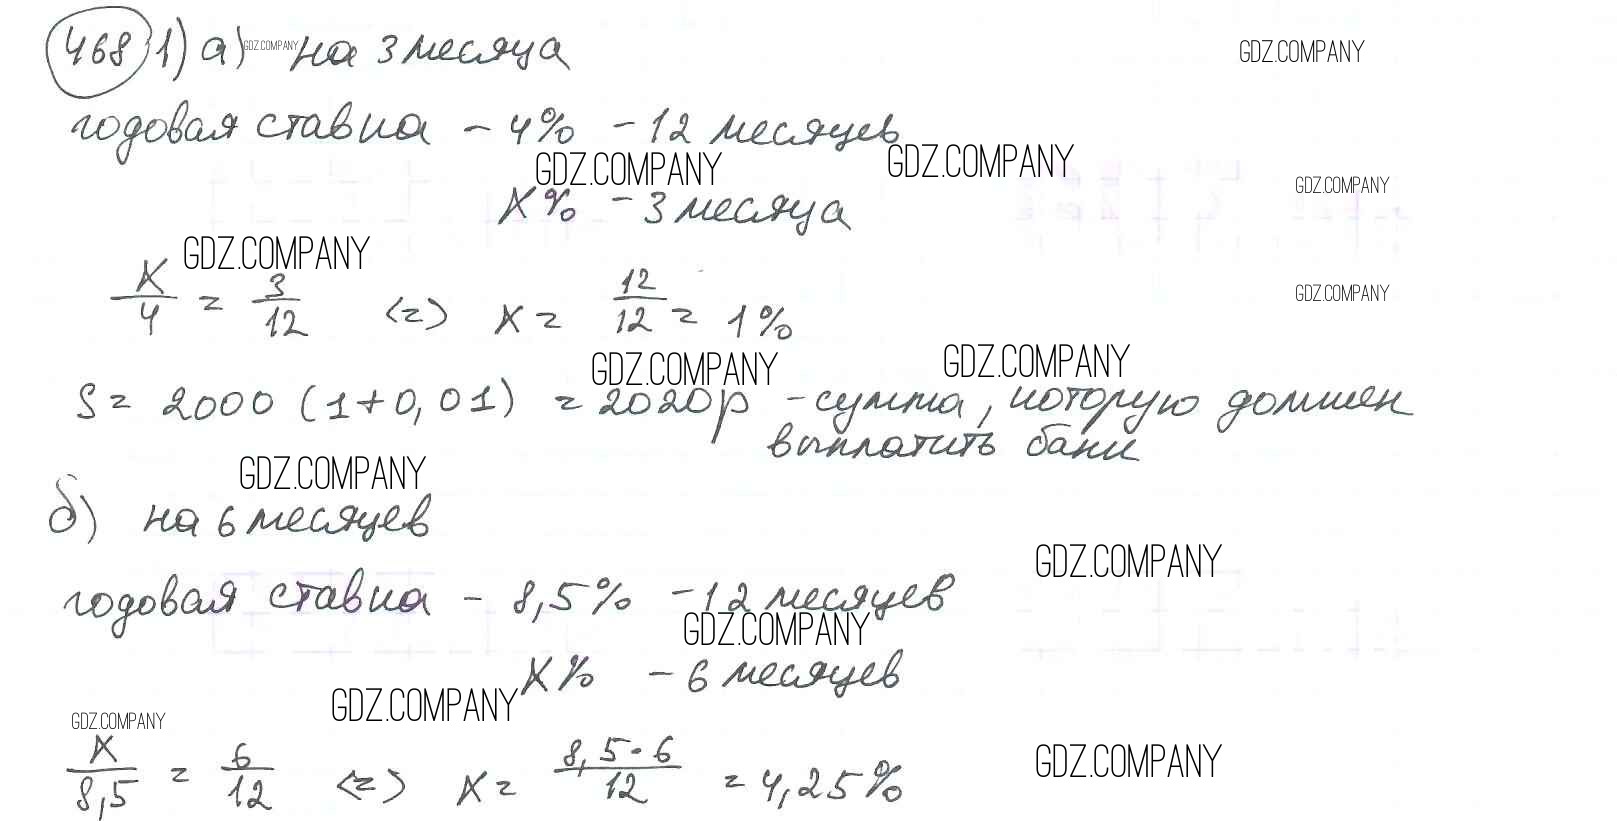 468 1) а) GDZ.COMPANY на 3 месяца GDZ.COMPANY
годовая ставка - 4% - 12 месяцев
GDZ.COMPANY GDZ.COMPANY
GDZ.COMPANY
x% - 3 месяца
GDZ.COMPANY
x/4 = 3/12 <=> x = 12/12 = 1%
GDZ.COMPANY
GDZ.COMPANY GDZ.COMPANY
S = 2000 (1+0,01) = 2020р - сумма, которую должен
выплатить банк
GDZ.COMPANY
б) на 6 месяцев
GDZ.COMPANY
годовая ставка - 8,5% - 12 месяцев
GDZ.COMPANY
x% - 6 месяцев
GDZ.COMPANY
GDZ.COMPANY
x/8,5 = 6/12 <=> x = 8,5·6/12 = 4,25%
GDZ.COMPANY